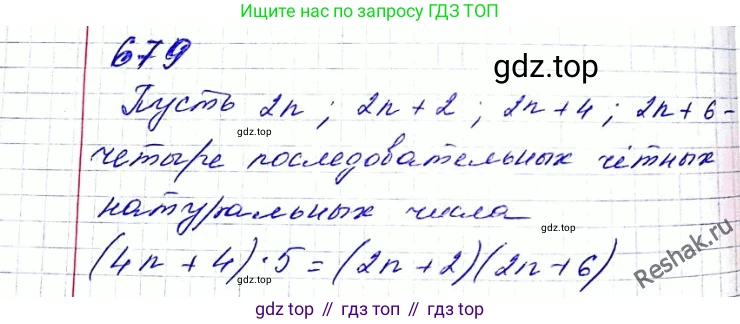 Ищите нас по запросу ГДЗ ТОП
679
gdz.top
Пусть 2n; 2n+2; 2n+4; 2n+6-
gdz.top
gdz.top
четыре последовательных чётных
gdz.top
натуральных числа
gdz.top
(4n+4)·5=(2n+2)(2n+6)
Reshak.ru
gdz.top
gdz.top // гдз топ // gdz.top